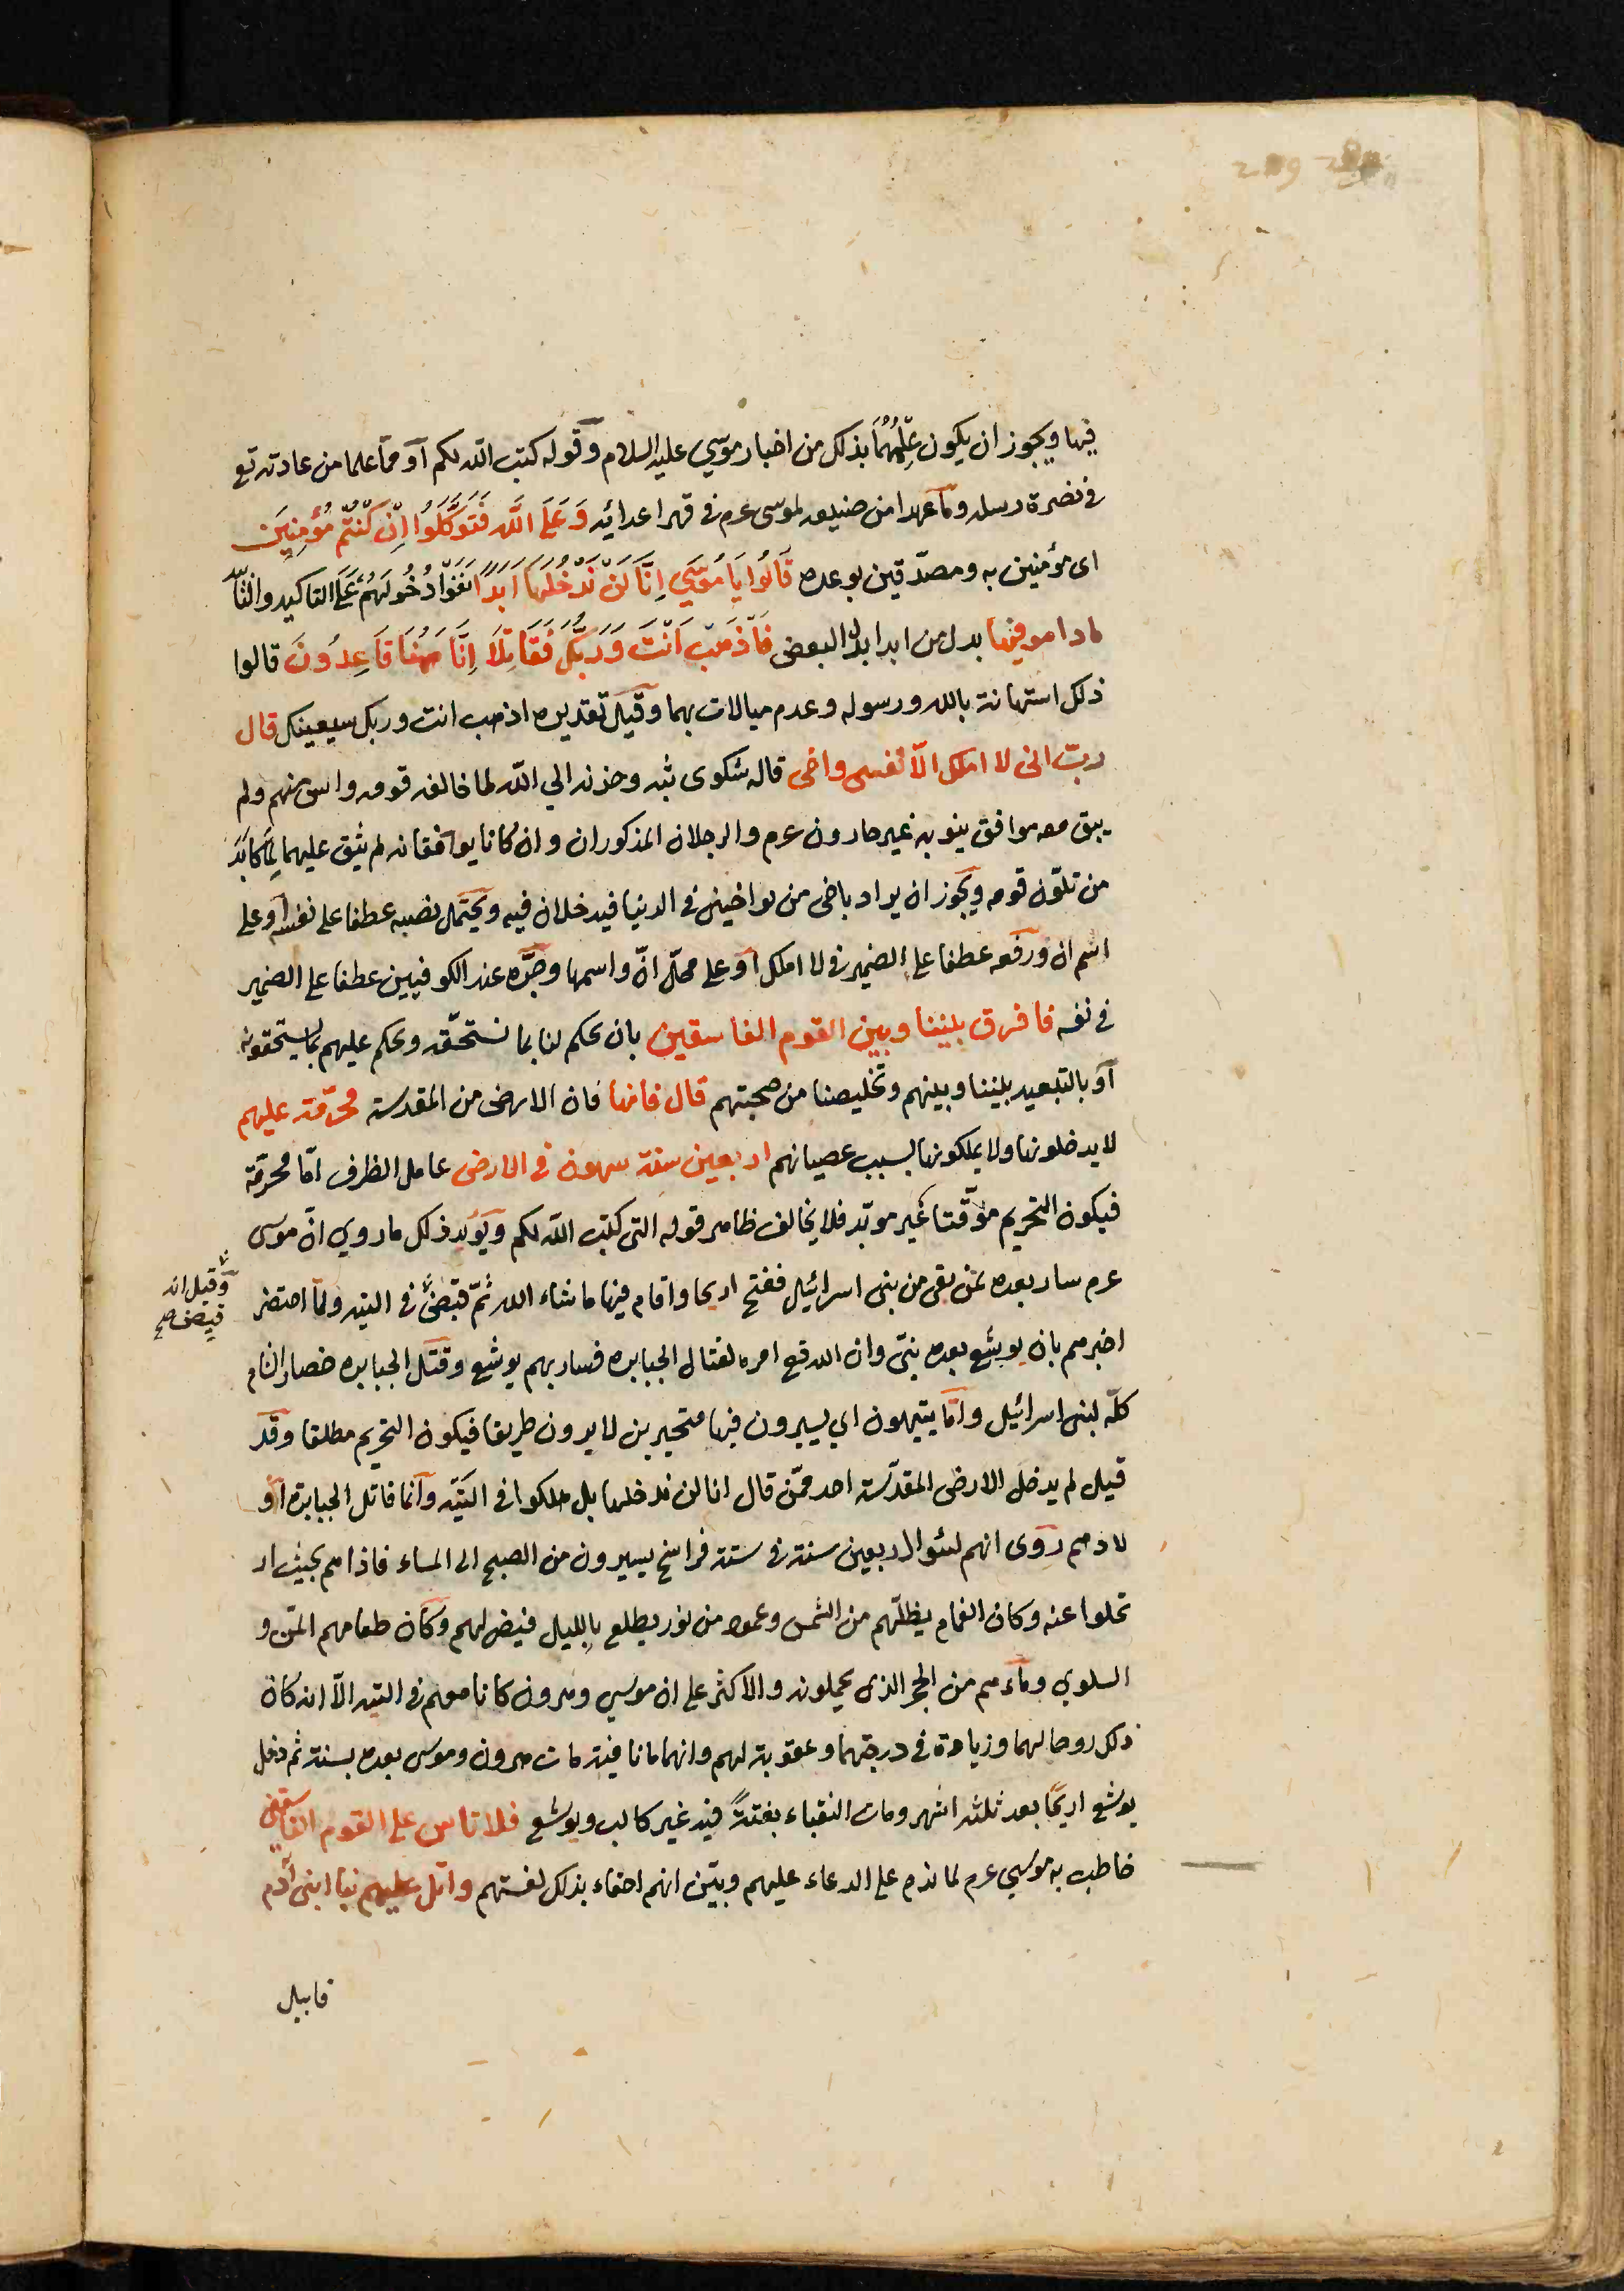 فيها ويجوز ان يكون عِلْمُهُمَا بذلك من اخبار موسى عليه السلام وقوله كتب الله لكم او مما علما من عادته تع
فى نصرة رسله وما عهدا من صنيعه لموسى عرم فى قهر اعدائه وَعَلَى اللَّه فَتَوَكَّلُوا اِنْ كُنْتُمْ مُؤْمِنِينَ
اى مؤمنين به ومصدّقين بوعده قَالُوا يَا مُوسَى اِنَّا لَنْ نَدْخُلَهَا اَبَدًا نَفَوْا دُخُولَهُمْ عَلَى التاكيد والتا
ما داموا فيها بدل من ابدا بدل البعض فَاذْهَبْ اَنْتَ وَرَبُّكَ فَقَاتِلَا اِنَّا هٰهُنَا قَاعِدُونَ قالوا
ذلك استهانة بالله ورسوله وعدم مبالات بهما وقيل تقديره اذهب انت وربك سيعينك قال
ربّ انى لا املك الّا نفسى واخى قاله شكوى بثه وحزنه الي الله لما خالفه قومه وايس منهم ولم
يبق معه موافق ينوبه غير هارون عرم والرجلان المذكوران وان كانا يوافقانه لم يثق عليهما لِمَا كَابَدَ
من تلوّن قومه ويجوز ان يراد باخى من يواخينى فى الدنيا فيدخلان فيه ويحتمل نصبه عطفا على نفسى او على
اسم ان ورفعه عطفا على الضمير فى لا املك او على محلّ انّ واسمها وجرّه عند الكوفيين عطفا على الضمير
فى نفسه فافرق بيننا وبين القوم الفاسقين بان يحكم لنا بما نستحقه ويحكم عليهم بما يستحقونه
او بالتبعيد بيننا وبينهم وتخليصنا من صحبتهم قال فانها فان الارض من المقدسة محرّمة عليهم
لا يدخلونها ولا يملكونها بسبب عصيانهم اربعين سنة يتيهون فى الارض عامل الظرف امّا محرّمة
فيكون التحريم موقّتا غير موبّد فلا يخالف ظاهر قوله التى كتب الله لكم ويؤيد ذلك ما روي انّ موسى
عرم سار بعده بمن بقى من بنى اسرائيل ففتح اريحا واقام فيها ما شاء الله ثمّ قبض فى التيه ولمّا احتضر
وقيل انه
قبض صح
اخبرهم بان يوشع بعده نبىّ وان الله تع امره لقتال الجبابره فسار بهم يوشع وقتل الجبابره فصار الشام
كلّه لبنى اسرائيل وامّا يتيهون اي يسيرون فيها متحيرين لا يرون طريقا فيكون التحريم مطلقا وقد
قيل لم يدخل الارض المقدّسة احد ممّن قال انا لن ندخلها بل هلكوا فى التيه وانما قاتل الجبابرة او
لادهم روى انهم لبثوا اربعين سنة فى ستة فراسخ يسيرون من الصبح الى المساء فاذا هم بحيث ار
تحلوا عنه وكان الغمام يظلّهم من الشمس وعمود من نور يطلع بالليل فيضئ لهم وكان طعامهم المنّ و
السلوى وماءهم من الحجر الذى يحملونه والاكثر على ان موسى وهرون كانا معهم فى التيه الّا انه كان
ذلك روحا لهما وزيادة فى درجتهما وعقوبة لهم وانهما ماتا فيه مات هرون وموسى بعده بسنة ثم دخل
يوشع اريحًا بعد ثلثة اشهر ومات النقباء بغتةً فيه غير كالب ويوشع فلا تاس على القوم الفاسقين
خاطب به موسى عرم لما ندم على الدعاء عليهم وبيّن انهم احقاء بذلك لفسقهم واتل عليهم نبا ابنى آدم
قابيل